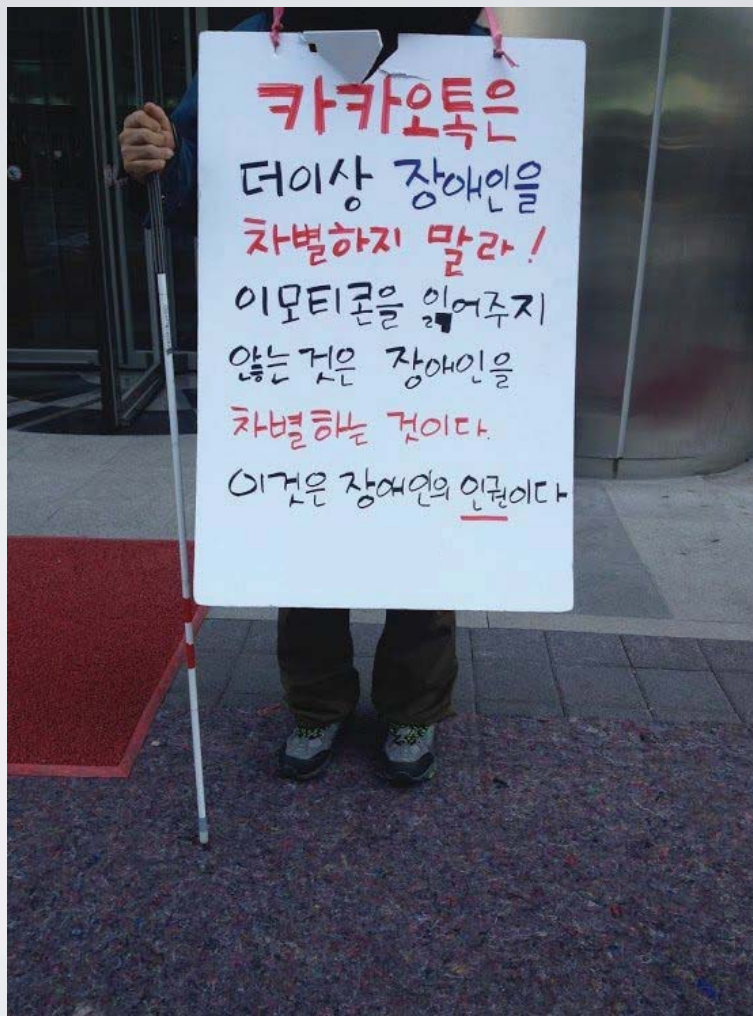 카카오톡은
더이상 장애인을
차별하지 말라!
이모티콘을 읽어주지
않는 것은 장애인을
차별하는 것이다.
이것은 장애인의 인권이다